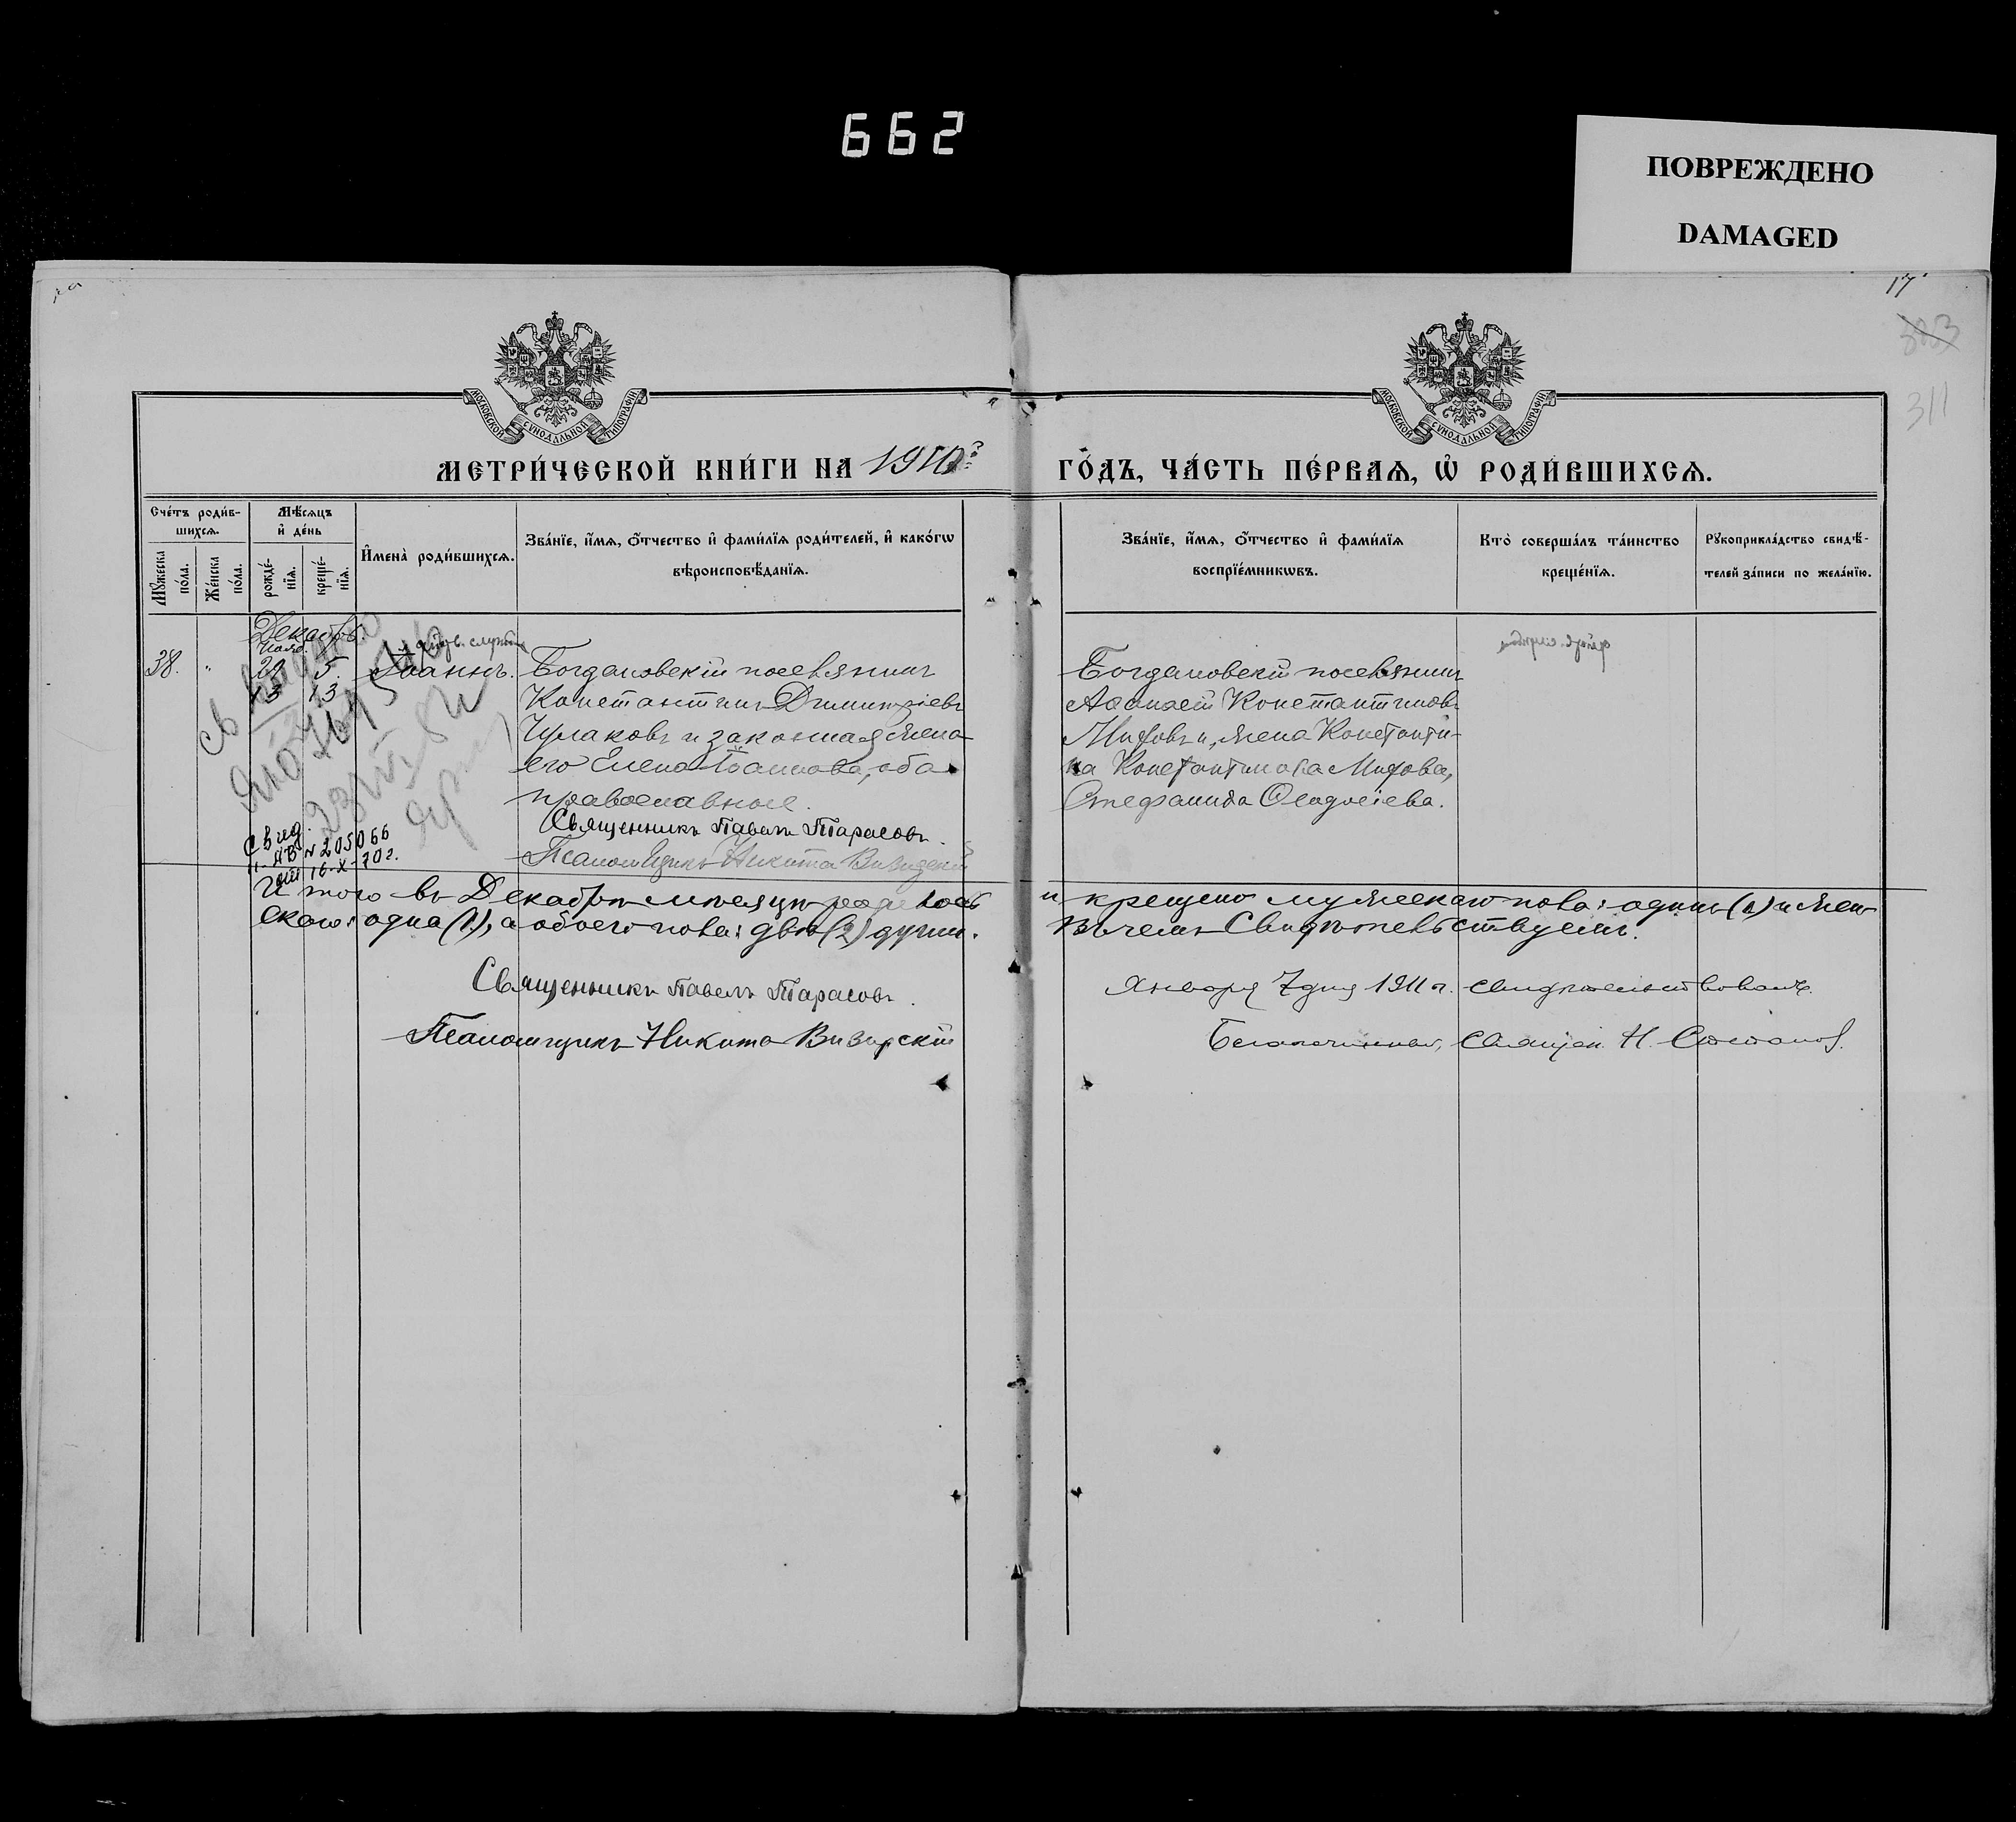 662
ПОВРЕЖДЕНО
DAMAGED
17
303
311
МОСКОВСКОЙ СѴНОДАЛЬНОЙ ТИПОГРАФІИ
МОСКОВСКОЙ СѴНОДАЛЬНОЙ ТИПОГРАФІИ
МЕТРИ́ЧЕСКОЙ КНИ́ГИ НА 1910
ГО́ДЪ, ЧА́СТЬ ПЕ́РВАѦ, Ѡ҆ РОДИ́ВШИХСѦ.
Сче́тъ роди́в-
шихсѧ.
Мꙋ́жеска по́ла.
Же́нска по́ла.
Мѣ́сѧцъ
и҆ де́нь
рожде́-
нїѧ.
креще́-
нїѧ.
И҆мена̀ роди́вшихсѧ.
Зва́нїе, и҆́мѧ, ѻ҆́тчество и҆ фами́лїѧ роди́телей, и҆ како́гѡ
вѣроисповѣ́данїѧ.
Зва́нїе, и҆́мѧ, ѻ҆́тчество и҆ фами́лїѧ
воспрїе́мникѡвъ.
Кто̀ соверша́лъ та́инство
креще́нїѧ.
Рꙋкоприкла́дство свидѣ́-
телей за́писи по жела́нїю.
Декабрь.
Нояб.
38. " 23 5. Іоаннъ. Богдановскій поселянинъ
13 13 Константинъ Димитріевъ
Чулаковъ и законная жена
его Елена Іоаннова, оба
православные.
Священникъ Павелъ Тарасовъ.
Псаломщикъ Никита Визирскій
Богдановскій поселянинъ
Константиновъ
Митовъ и, жена Константи-
на Константинова Митова,
Стефанида
свид.
N 205066
16-X-70 г.
Итого въ Декабрѣ мѣсяцѣ родилось
и крещено мужескаго пола: одинъ (1) и жен-
скаго: одна (1), а обоего пола: двѣ (2) души.
въ чемъ Свидѣтельствуемъ.
Священникъ Павелъ Тарасовъ.
Псаломщикъ Никита Визирскій
Января 7 дня 1911 г. свидѣтельствовалъ.
Благочинный, Священ. Н. Стояновъ.